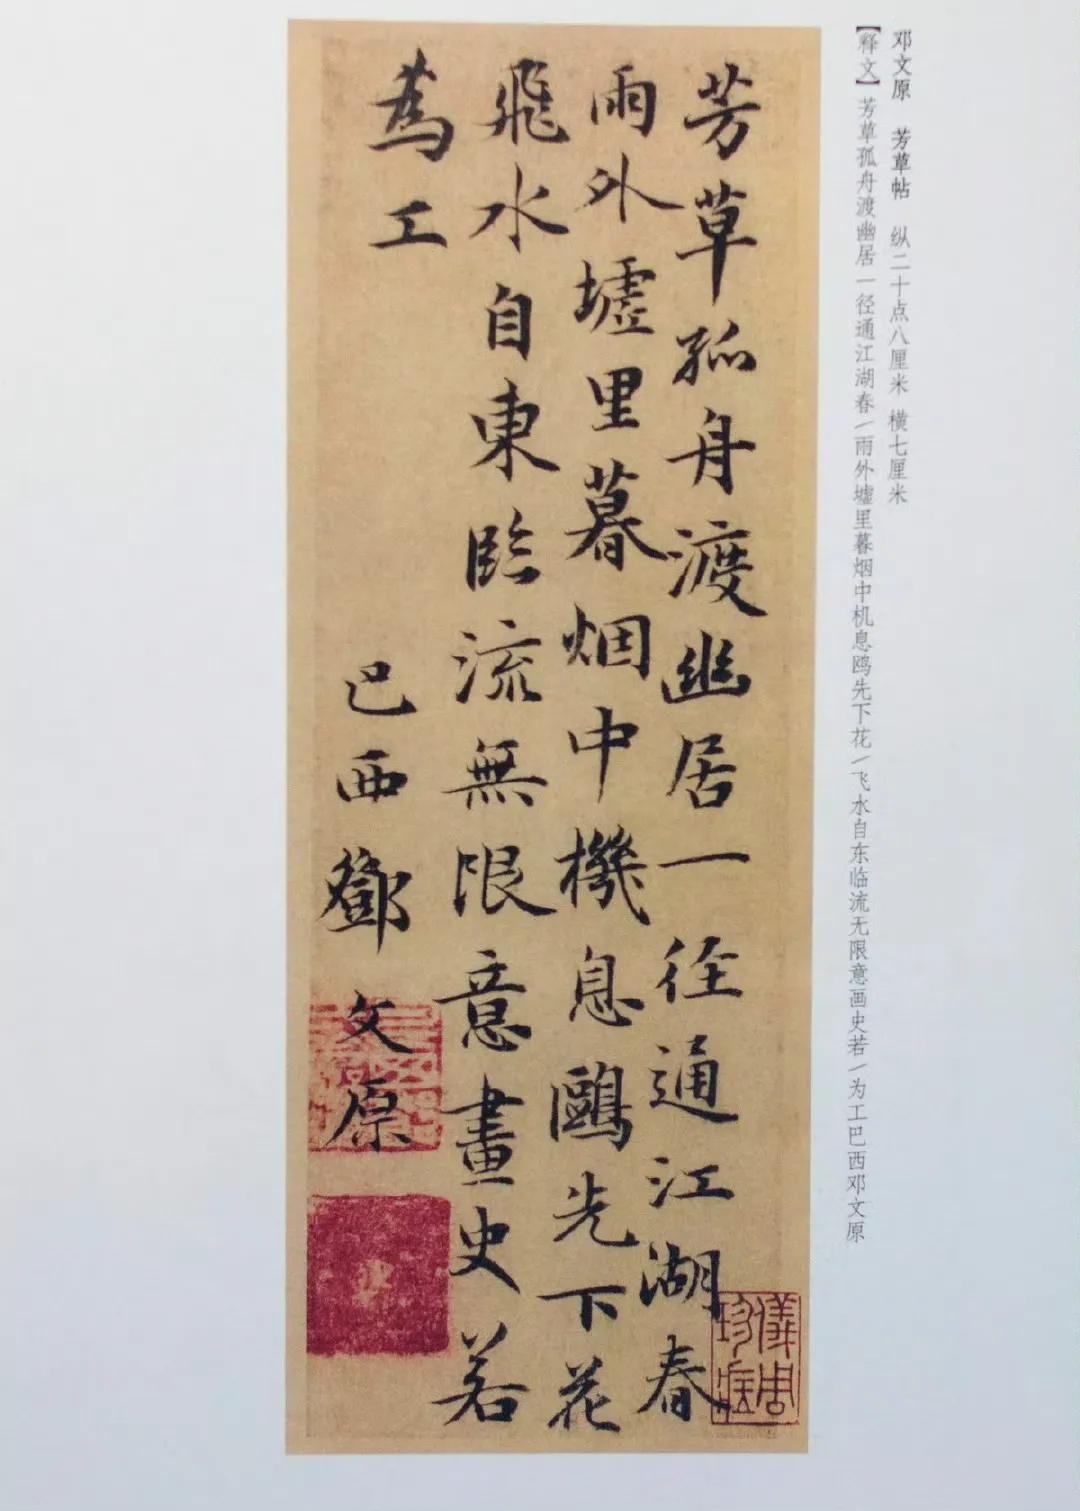 邓文原　芳草帖　纵二十点八厘米 横七厘米
【释文】芳草孤舟渡幽居一径通江湖春/雨外墟里暮烟中机息鸥先下花/飞水自东临流无限意画史若/为工巴西邓文原
芳草孤舟渡幽居一径通江湖春
雨外墟里暮烟中機息鷗先下花
飛水自東臨流無限意畫史若
為工
巴西鄧文原
儀周珍藏